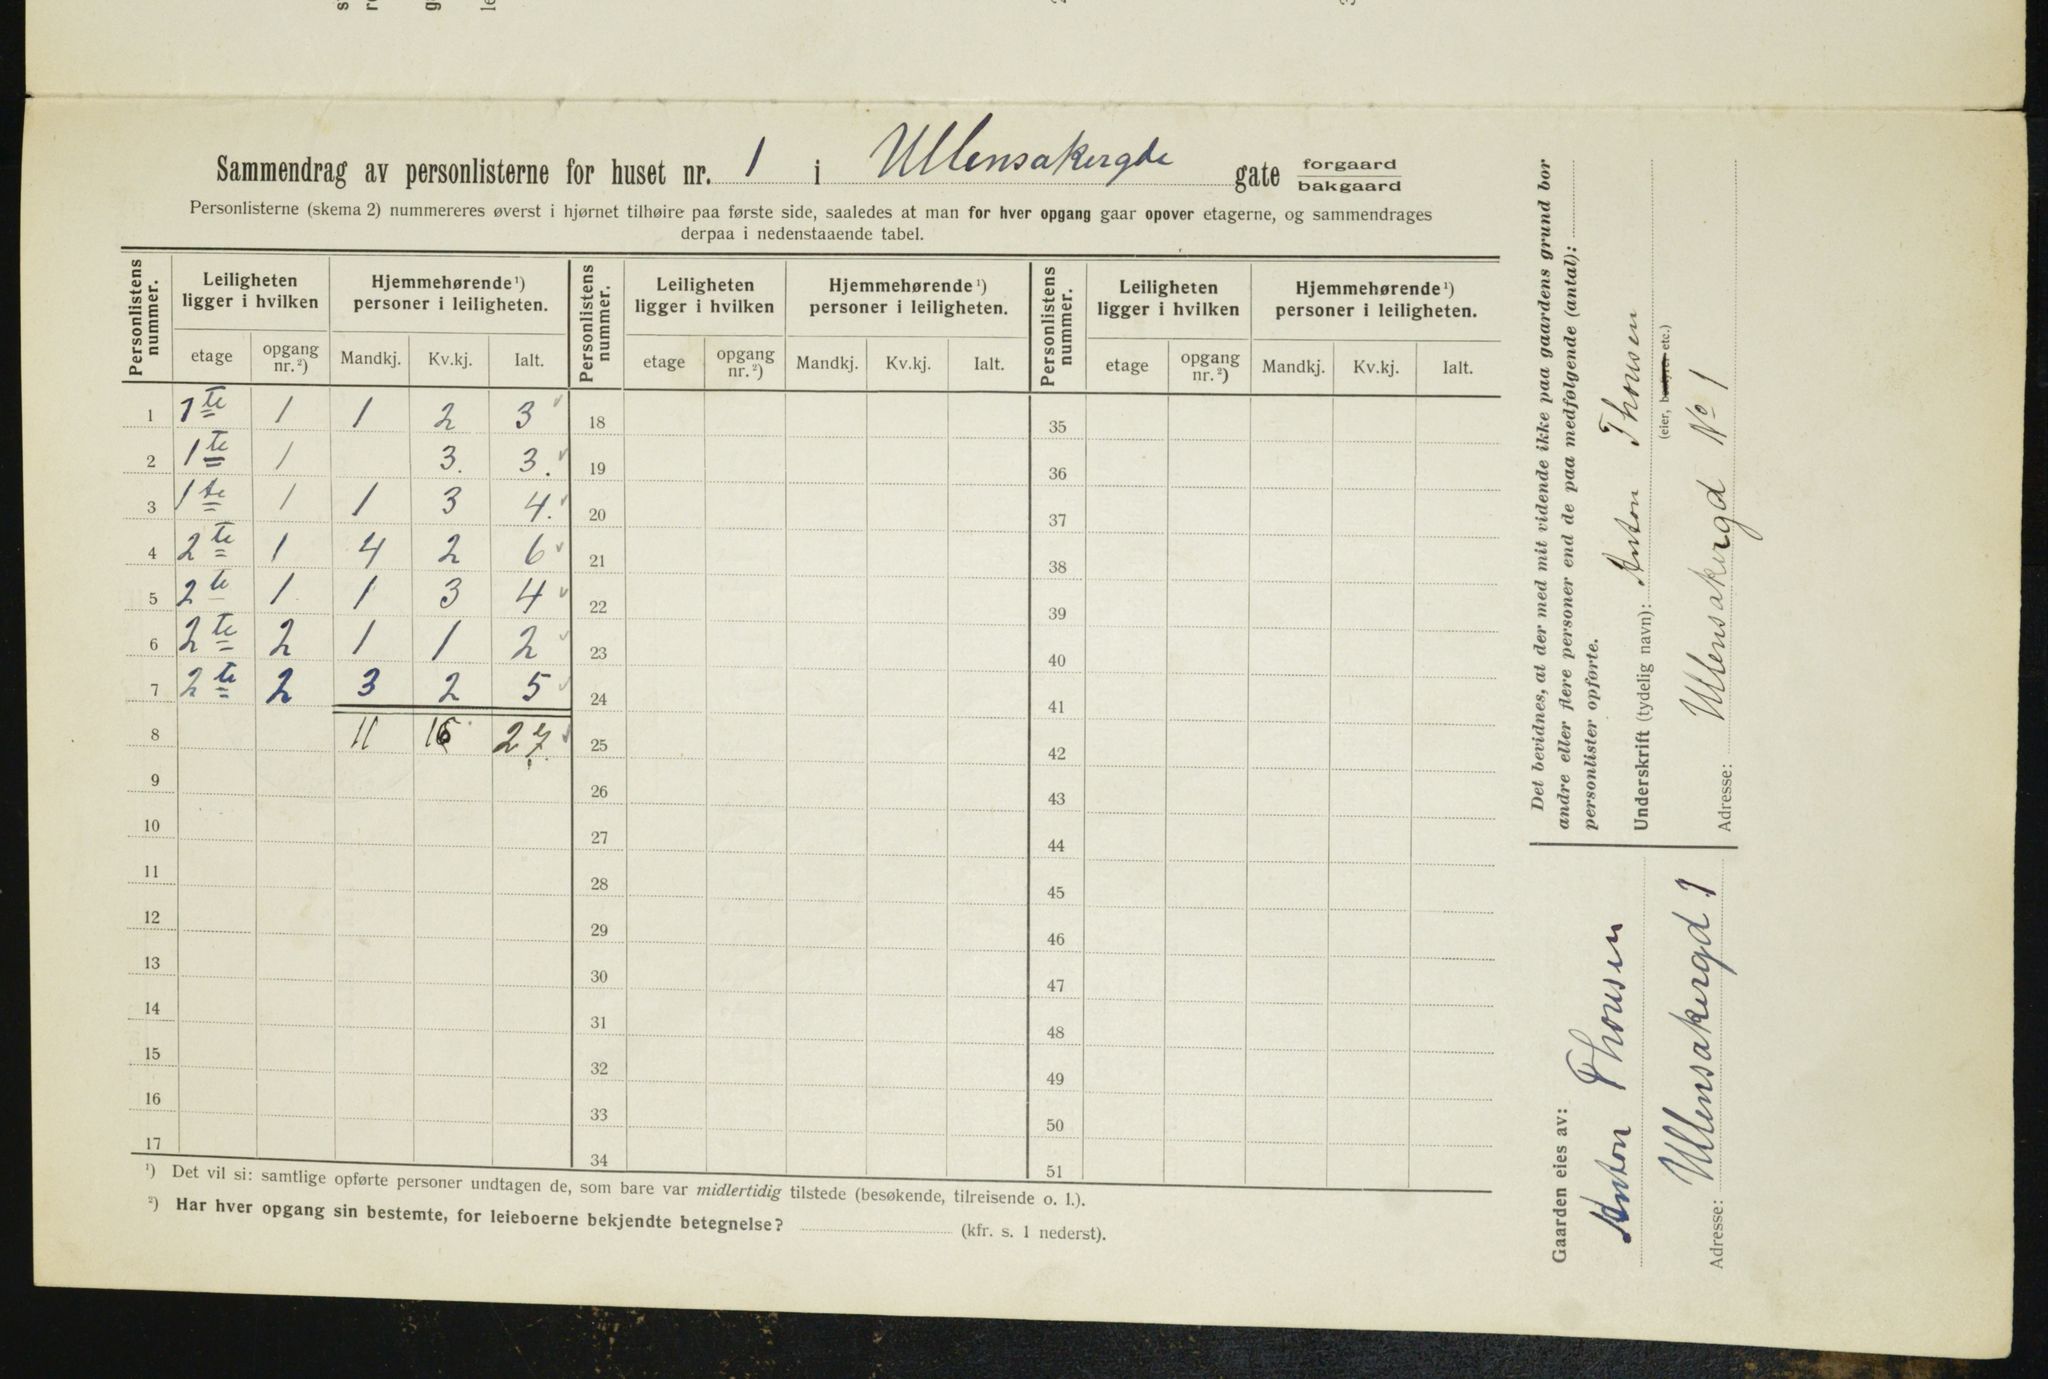 Sammendrag av personlisterne for huset nr. 1 i Ullensakergde gate forgaard bakgaard
Personlisterne (skema 2) nummereres øverst i hjørnet tilhøire paa første side, saaledes at man for hver opgang gaar opover etagerne, og sammendrages
derpaa i nedenstaaende tabel.
Personlistens nummer. Leiligheten ligger i hvilken Hjemmehørende¹) personer i leiligheten. Personlistens nummer. Leiligheten ligger i hvilken Hjemmehørende¹) personer i leiligheten. Personlistens nummer. Leiligheten ligger i hvilken Hjemmehørende¹) personer i leiligheten.
etage opgang nr.²) Mandkj. Kv.kj. Ialt. etage opgang nr.²) Mandkj. Kv.kj. Ialt. etage opgang nr.²) Mandkj. Kv.kj. Ialt.
1 1te 1 1 2 3 18 35
2 1te 1 3. 3. 19 36
3 1te 1 1 3 4. 20 37
4 2te 1 4 2 6 21 38
5 2te 1 1 3 4 22 39
6 2te 2 1 1 2 23 40
7 2te 2 3 2 5 24 41
8 11 16 27 25 42
9 26 43
10 27 44
11 28 45
12 29 46
13 30 47
14 31 48
15 32 49
16 33 50
17 34 51
¹) Det vil si: samtlige opførte personer undtagen de, som bare var midlertidig tilstede (besøkende, tilreisende o. l.).
²) Har hver opgang sin bestemte, for leieboerne bekjendte betegnelse? (kfr. s. 1 nederst).
Det bevidnes, at der med mit vidende ikke paa gaardens grund bor
andre eller flere personer end de paa medfølgende (antal):
personlister opførte.
Underskrift (tydelig navn): Anton Thonsen
(eier, bestyrer etc.)
Adresse: Ullensakergd No 1
Gaarden eies av:
Anton Thonsen
Adresse: Ullensakergd 1